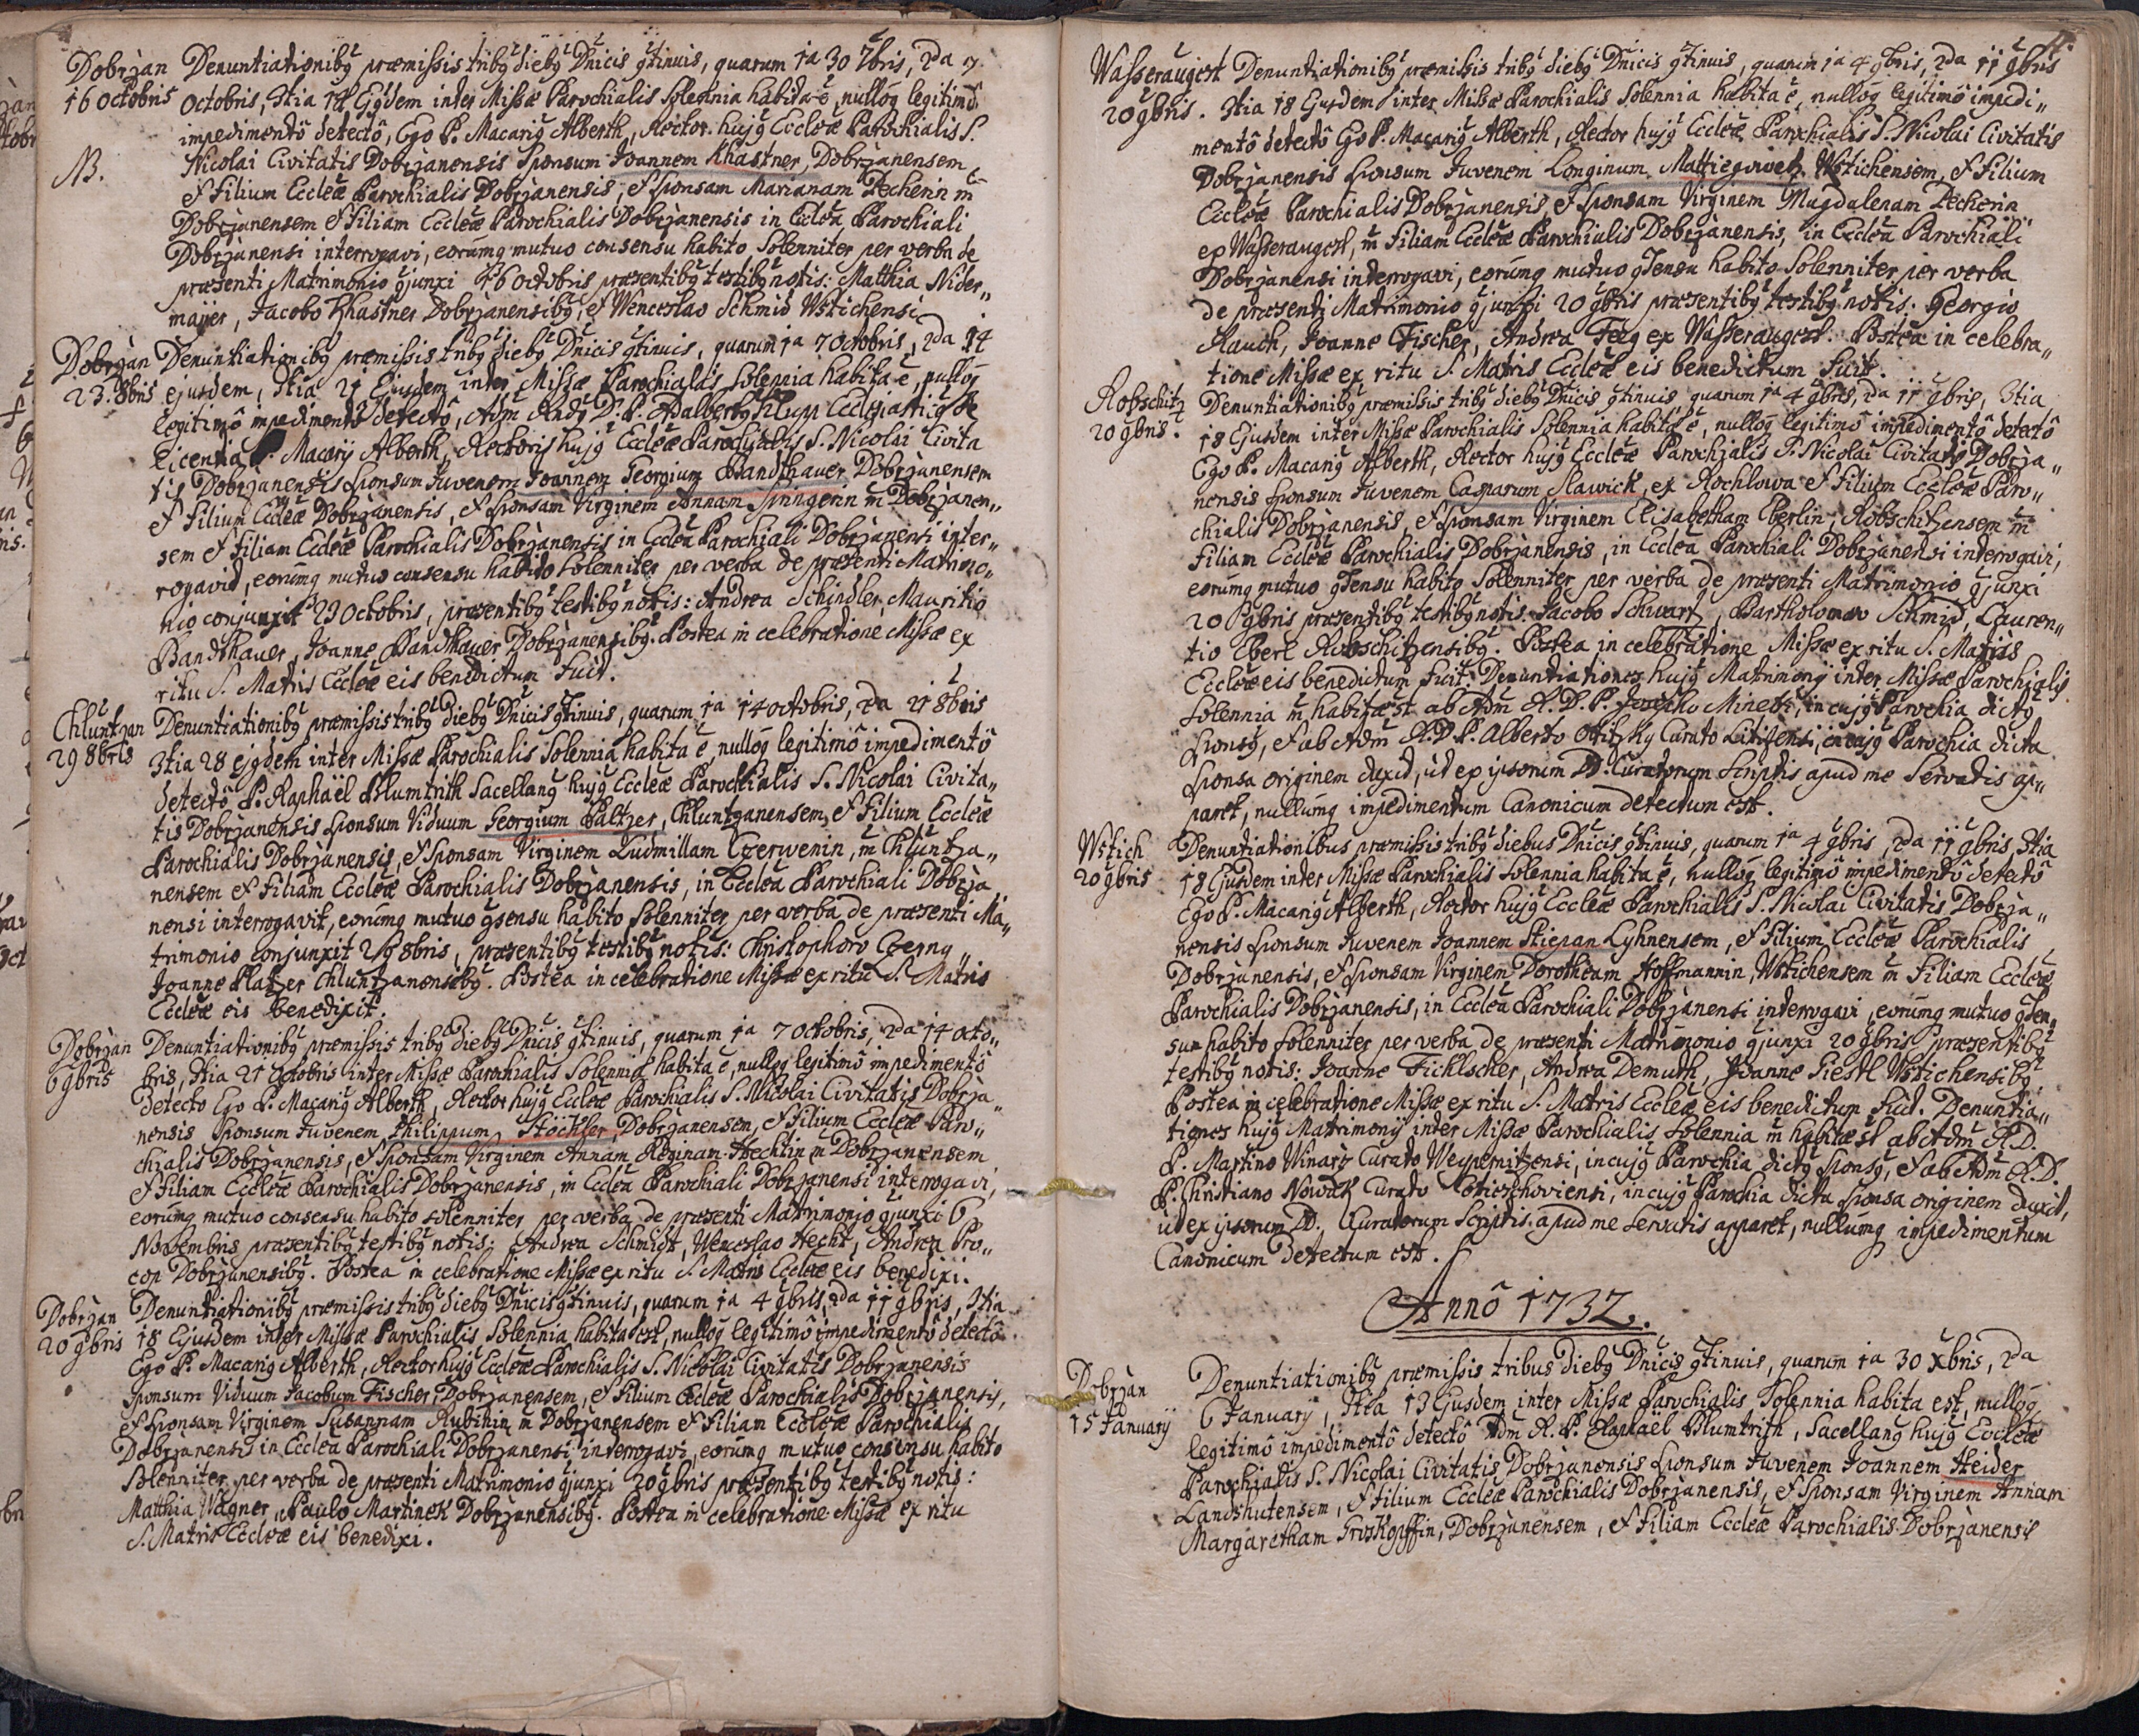 Dobrzan Denuntiationibȝ præmissis tribȝ diebȝ Dnicis ꝯtinuis, quarum 1a 30 7bris, 2da 7
16 Octobris Octobris, 3tia 14 Ejȝdem inter Missæ Parochialis Solennia habita ē, nullōq legitimô
impedimentô detectô, Ego P. Macariȝ Alberth, Rector hujȝ Eccleæ Parochialis S.
NB. Nicolai Civitatis Dobrzanensis Sponsum Joannem Khastner, Dobrzanensem
et Filium Eccleæ Parochialis Dobrzanensis, et Sponsam Marianam Pecherin m̄
Dobrzanensem et Filiam Eccleæ Parochialis Dobrzanensis in Ecclea Parochiali
Dobrzanensi interrogavi, eorūmq mutuo consensu habito Solenniter per verba de
præsenti Matrimonio ꝯjunxi 16 Octobris præsentibȝ testibȝ notis: Matthia Nider„
majer, Jacobo Khastner Dobrzanensibȝ, et Wenceslao Schmid Wstichensi.
Dobrzan Denuntiationibȝ præmissis tribȝ diebȝ Dnicis ꝯtinuis, quarum 1a 7 Octobris, 2da 14
23. 8bris ejusdem, 3tia 21 Ejusdem inter Missæ Parochialis Solennia habita ē, nullōq
legitimô impedimentô detectô, Adm Rndȝ D. P. Adalbertȝ Filupp Ecclesiasticȝ de
licentia P. Macarij Alberth, Rectoris hujȝ Eccleæ Parochialis S. Nicolai Civita
tis Dobrzanensis Sponsum Juvenem Joannem Georgium Bandthauer Dobrzanensem
et Filium Eccleæ Dobrzanensis, et Sponsam Virginem Annam Springerin m̄ Dobrzanen„
sem et Filiam Eccleæ Parochialis Dobrzanensis in Ecclea Parochiali Dobrzanensi inter„
rogavit, eorūmq mutuo consensu habito Solenniter per verba de præsenti Matrimo„
nio conjunxit 23 Octobris, præsentibȝ testibȝ notis: Andrea Schindler Mauritio
Bandthauer, Joanne Bandthauer Dobrzanensibȝ. Postea in celebratione Missæ ex
ritu S. Matris Eccleæ eis benedictum Fuit.
Chluntzan Denuntiationibȝ præmissis tribȝ diebȝ Dnicis ꝯtinuis, quarum 1a 14 Octobris, 2da 21 8bris
29 8bris 3tia 28 ejȝdem inter Missæ Parochialis Solennia habita ē, nullōq legitimô impedimentô
detectô P. Raphaël Blumtrith Sacellanȝ hujȝ Eccleæ Parochialis S. Nicolai Civita„
tis Dobrzanensis Sponsum Viduum Georgium Paltzer, Chluntzanensem, et Filium Eccleæ
Parochialis Dobrzanensis, et Sponsam Virginem Ludmillam Czerwenin, m̄ Chluntza„
nensem et Filiam Eccleæ Parochialis Dobrzanensis, in Ecclea Parochiali Dobrza
nensi interrogavit, eorūmq mutuo ꝯsensu habito Solenniter per verba de præsenti Ma„
trimonio conjunxit 29 8bris, præsentibȝ testibȝ notis: Christophoro Czerny„
Joanne Platzer Chluntzanensibȝ. Postea in celebratione Missæ ex ritu S. Matris
Eccleæ eis benedixit.
Dobrzan Denuntiationibȝ præmissis tribȝ diebȝ Dnicis ꝯtinuis, quarum 1a 7 Octobris, 2da 14 Octo„
6 9bris bris, 3tia 21 Octobris inter Missæ Parochialis Solennia habita ē, nullōq legitimô impedimentô
detecto Ego P. Macariȝ Alberth, Rector hujȝ Eccleæ Parochialis S. Nicolai Civitatis Dobrza„
nensis Sponsum Juvenem Philippum Stöckler, Dobrzanensem, et Filium Eccleæ Paro„
chialis Dobrzanensis, et Sponsam Virginem Annam Reginam Hechtin m̄ Dobrzanensem
et Filiam Eccleæ Parochialis Dobrzanensis, in Ecclea Parochiali Dobrzanensi interrogavi,
eorūmq mutuo consensu habito solenniter per verba de præsenti Matrimonio ꝯjunxi 6
Novembris præsentibȝ testibȝ notis: Andrea Schmidt, Wenceslao Hecht, Andrea Pro„
cop Dobrzanensibȝ. Postea in celebratione Missæ ex ritu S. Matris Eccleæ eis benedixi.
Dobrzan Denuntiationibȝ præmissis tribȝ diebȝ Dnicis ꝯtinuis, quarum 1a 4 9bris, 2da 11 9bris, 3tia
20 9bris 18 Ejusdem inter Missæ Parochialis Solennia habita est, nullōq legitimô impedimentô detectô
Ego P. Macariȝ Alberth, Rector hujȝ Eccleæ Parochialis S. Nicolai Civitatis Dobrzanensis
Sponsum Viduum Jacobum Fischer, Dobrzanensem, et Filium Eccleæ Parochialis Dobrzanensis,
et Sponsam Virginem Susannam Rubihin m̄ Dobrzanensem et Filiam Eccleæ Parochialis
Dobrzanensis in Ecclea Parochiali Dobrzanensi interrogavi, eorūmq mutuo consensu habito
Solenniter per verba de præsenti Matrimonio ꝯjunxi 20 9bris præsentibȝ testibȝ notis:
Matthia Wagner, Paulo Martinek Dobrzanensibȝ. Postea in celebratione Missæ ex ritu
S. Matris Eccleæ eis benedixi.
Wasseraugest Denuntiationibȝ præmissis tribȝ diebȝ Dnicis ꝯtinuis, quarum 1a 4 9bris, 2da 11 9bris
20 9bris. 3tia 18 Ejusdem inter Missæ Parochialis Solennia habita ē, nullōq legitimô impedi„
mentô detectô Ego P. Macariȝ Alberth, Rector hujȝ Eccleæ Parochialis S. Nicolai Civitatis
Dobrzanensis Sponsum Juvenem Longinum Mattiegowetz Wstichensem, et Filium
Eccleæ Parochialis Dobrzanensis, et Sponsam Virginem Magdalenam Pecherin
ex Wasseraugest, m̄ Filiam Eccleæ Parochialis Dobrzanensis, in Ecclea Parochiali
Dobrzanensi interrogavi, eorūmq mutuo ꝯsensu habito Solenniter per verba
de præsenti Matrimonio ꝯjunxi 20 9bris præsentibȝ testibȝ notis: Georgio
Rauch, Joanne Fischer, Andrea Feeg ex Wasseraugest. Postea in celebra„
tione Missæ ex ritu S. Matris Eccleæ eis benedictum Fuit.
Robschitz Denuntiationibȝ præmissis tribȝ diebȝ Dnicis ꝯtinuis quarum 1a 4 9bris, 2da 11 9bris, 3tia
20 9bris. 18 Ejusdem inter Missæ Parochialis Solennia habita ē, nullōq legitimô impedimentô detectô
Ego P. Macariȝ Alberth, Rector hujȝ Eccleæ Parochialis S. Nicolai Civitatis Dobrza„
nensis Sponsum Juvenem Casparum Slawick, ex Rochlowa et Filium Eccleæ Paro„
chialis Dobrzanensis, et Sponsam Virginem Elisabetham Eberlin, Robschitzensem m̄
Filiam Eccleæ Parochialis Dobrzanensis, in Ecclea Parochiali Dobrzanensi interrogavi,
eorūmq mutuo ꝯsensu habito Solenniter per verba de præsenti Matrimonio ꝯjunxi
20 9bris præsentibȝ testibȝ notis: Jacobo Schwartz, Bartholomæo Schmid, Lauren„
tio Eberl Robschitzensibȝ. Postea in celebratione Missæ ex ritu S. Matris
Eccleæ eis benedictum Fuit. Denuntiationes hujȝ Matrimonij inter Missæ Parochialis
Solennia m̄ habitæ st ab Adm R. D. P. Minetti, in cujȝ Parochia dictȝ
Sponsȝ, et ab Adm R. D. P. Alberto Curato Litizensi, in cujȝ Parochia dicta
Sponsa originem duxit, ut ex ipsorum DD. Curatorum Scriptis apud me Servatis ap„
paret, nullumq impedimentum Canonicum detectum est.
Wstich Denuntiationibus præmissis tribȝ diebus Dnicis ꝯtinuis, quarum 1a 4 9bris, 2da 11 9bris, 3tia
20 9bris 18 Ejusdem inter Missæ Parochialis Solennia habita ē, nullōq legitimô impedimentô detectô
Ego P. Macariȝ Alberth, Rector hujȝ Eccleæ Parochialis S. Nicolai Civitatis Dobrza„
nensis Sponsum Juvenem Joannem Stiepan Lyhnensem, et Filium Eccleæ Parochialis
Dobrzanensis, et Sponsam Virginem Dorotheam Hoffmannin, Wstichensem m̄ Filiam Eccleæ
Parochialis Dobrzanensis, in Ecclea Parochiali Dobrzanensi interrogavi, eorūmq mutuo ꝯsen„
su habito Solenniter per verba de præsenti Matrimonio ꝯjunxi 20 9bris præsentibȝ
testibȝ notis: Joanne Fichlscher, Andrea Demuth, Joanne Siestl Wstichensibȝ
Postea in celebratione Missæ ex ritu S. Matris Eccleæ eis benedictum Fuit. Denuntia„
tiones hujȝ Matrimonij inter Missæ Parochialis Solennia m̄ habitæ st ab Adm R. D.
P. Martino Winarz Curato Weypernitzensi, in cujȝ Parochia dictȝ Sponsȝ, et ab Adm R. D.
P. Christiano Nowak Curato in cujȝ Parochia dicta Sponsa originem duxit,
ut ex ipsorum DD. Curatorum Scriptis apud me Servatis apparet, nullumq impedimentum
Canonicum Detectum est.
Annô 1732.
Dobrzan Denuntiationibȝ præmissis tribus diebȝ Dnicis ꝯtinuis, quarum 1a 30 Xbris, 2da
15 January 6 January, 3tia 13 Ejusdem inter Missæ Parochialis Solennia habita est, nullōq
legitimô impedimentô detectô Adm R. P. Raphaël Blumtrith, Sacellanȝ hujȝ Eccleæ
Parochialis S. Nicolai Civitatis Dobrzanensis Sponsum Juvenem Joannem Heider
Landshutensem, et Filium Eccleæ Parochialis Dobrzanensis, et Sponsam Virginem Annam
Margaretham Groskopffin, Dobrzanensem, et Filiam Eccleæ Parochialis Dobrzanensis